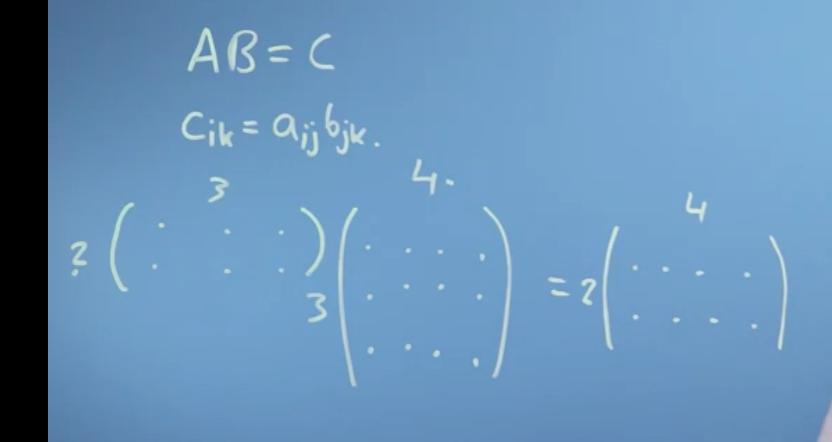 AB = C
cik = aij bjk.
3 4. 4
2 ( . . . ) 3 ( . . . . ) = 2 ( . . . . )